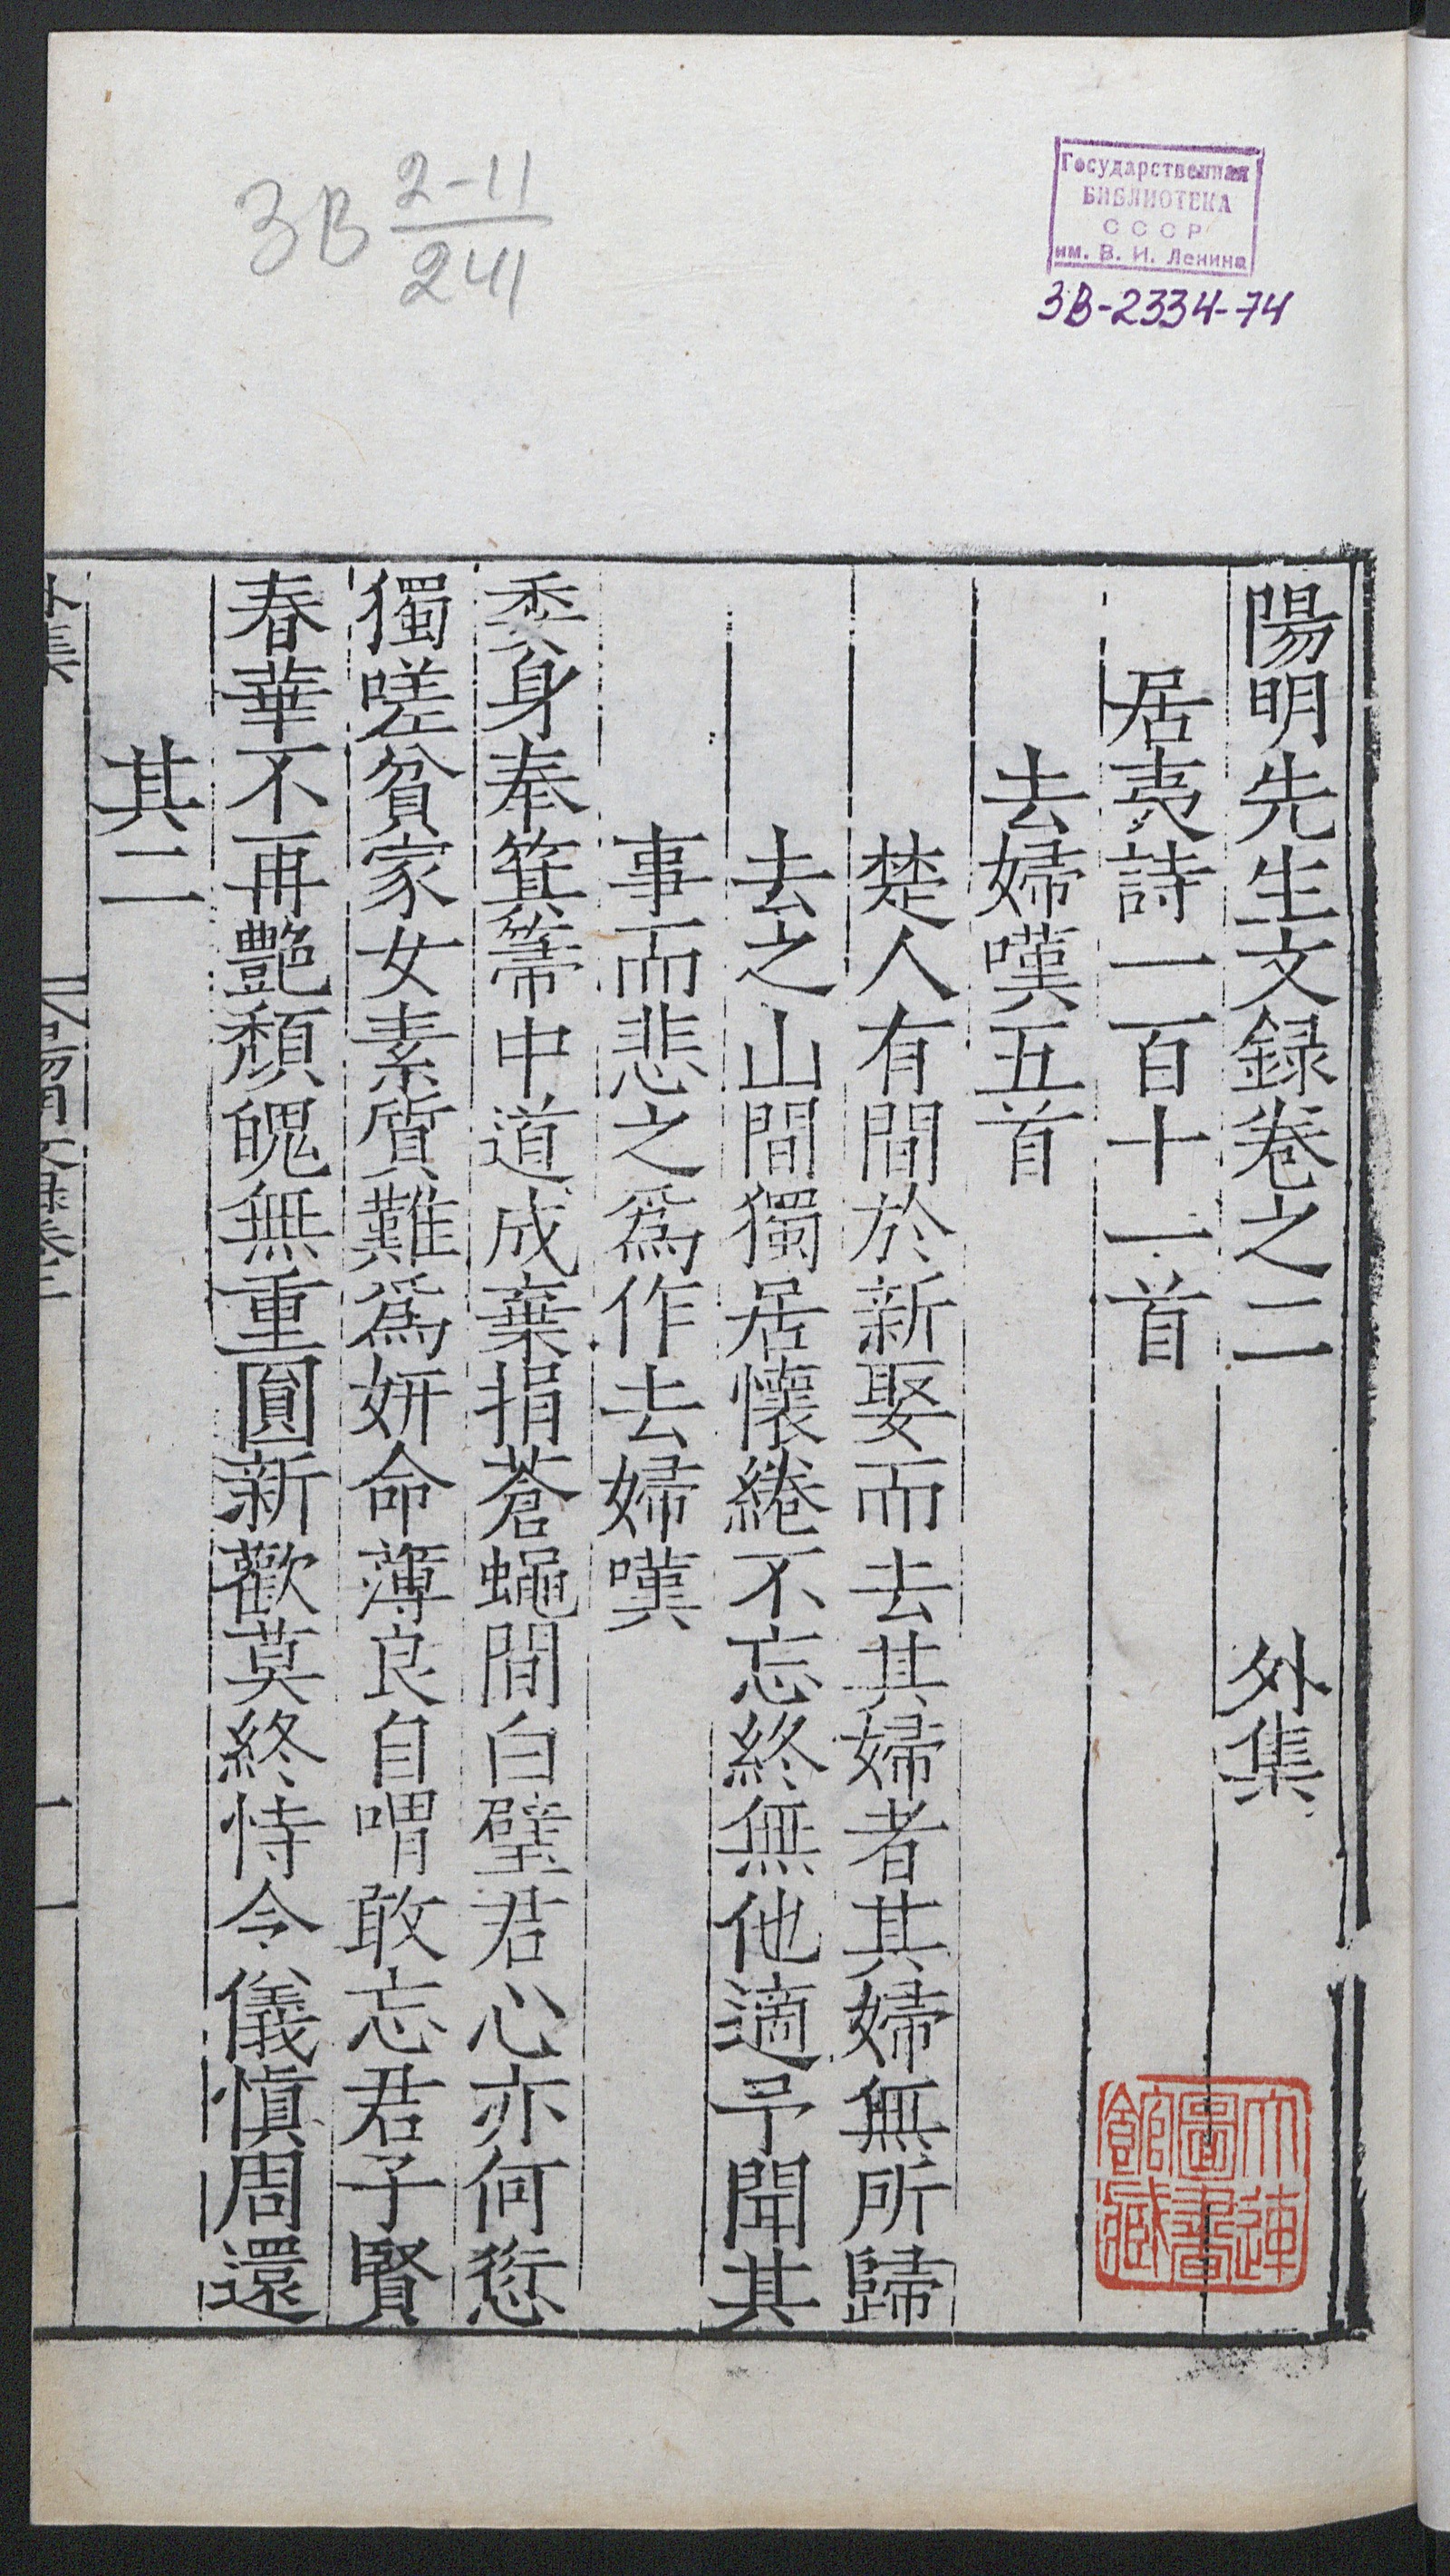 3В 2-11
241
Государственная
БИБЛИОТЕКА
СССР
им. В. И. Ленина
3В-2334-74
陽明先生文録卷之二 外集
居夷詩一百十一首
去婦嘆五首
楚人有間於新娶而去其婦者其婦無所歸
去之山間獨居懷綣不忘終無他適予聞其
事而悲之爲作去婦嘆
委身奉箕箒中道成棄捐蒼蠅間白璧君心亦何愆
獨嗟貧家女素質難爲妍命薄良自喟敢忘君子賢
春華不再艷頽魄無重圓新歡莫終恃令儀慎周還
其二
大連
圖書
館藏
外集
一